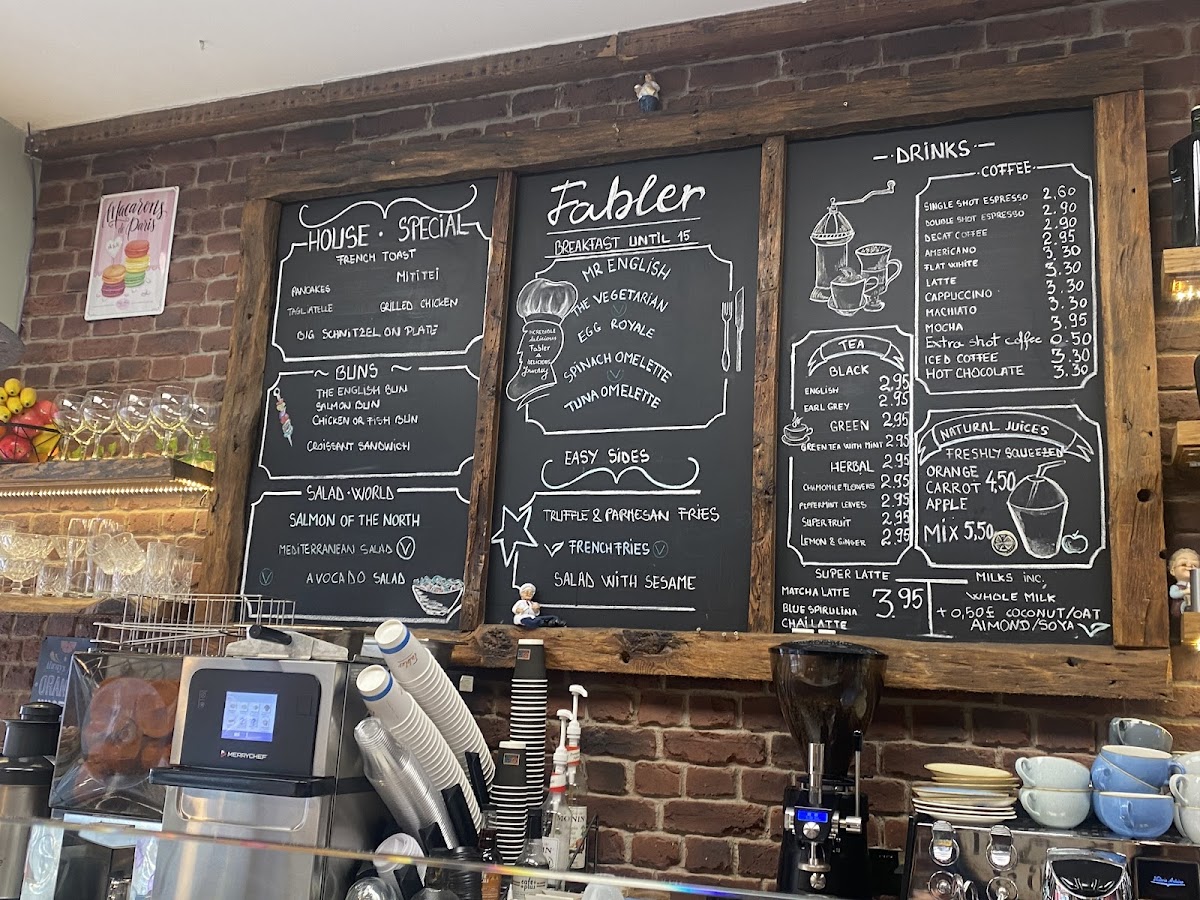 Macarons
de Paris
HOUSE · SPECIAL
FRENCH TOAST
MITITEI
PANCAKES
TAGLIATELLE
GRILLED CHICKEN
BIG SCHNITZEL ON PLATE
~ BUNS ~
THE ENGLISH BUN
SALMON BUN
CHICKEN OR FISH BUN
CROISSANT SANDWICH
SALAD · WORLD
SALMON OF THE NORTH
MEDITERRANEAN SALAD V
V AVOCADO SALAD
Fabler
BREAKFAST UNTIL 15
MR ENGLISH
THE VEGETARIAN
V
EGG ROYALE
SPINACH OMELETTE
V
TUNA OMELETTE
INCREDIBLE
delicious
Fabler
A
DELICIOUS
Journey
EASY SIDES
TRUFFLE & PARMESAN FRIES
FRENCH FRIES V
SALAD WITH SESAME
- · DRINKS · -
· COFFEE ·
SINGLE SHOT ESPRESSO 2.60
DOUBLE SHOT ESPRESSO 2.90
DECAT COFFEE 2.90
AMERICANO 2.95
FLAT WHITE 3.30
LATTE 3.30
CAPPUCCINO 3.30
MACHIATO 3.30
MOCHA 3.95
Extra shot coffee 0.50
ICED COFFEE 3.30
HOT CHOCOLATE 3.30
TEA
BLACK
ENGLISH 2.95
EARL GREY 2.95
GREEN 2.95
GREEN TEA WITH MINT 2.95
HERBAL 2.95
CHAMOMILE FLOWERS 2.95
PEPPERMINT LEAVES 2.95
SUPER FRUIT 2.95
LEMON & GINGER 2.95
NATURAL JUICES
FRESHLY SQUEEZED
ORANGE
CARROT 4,50
APPLE
MIX 5,50
SUPER LATTE
MATCHA LATTE
BLUE SPIRULINA 3.95
CHAI LATTE
MILKS INC.
WHOLE MILK
+ 0,50£ COCONUT/OAT
AlMOND/SOYA
MERRYCHEF
Fabler
MONIN